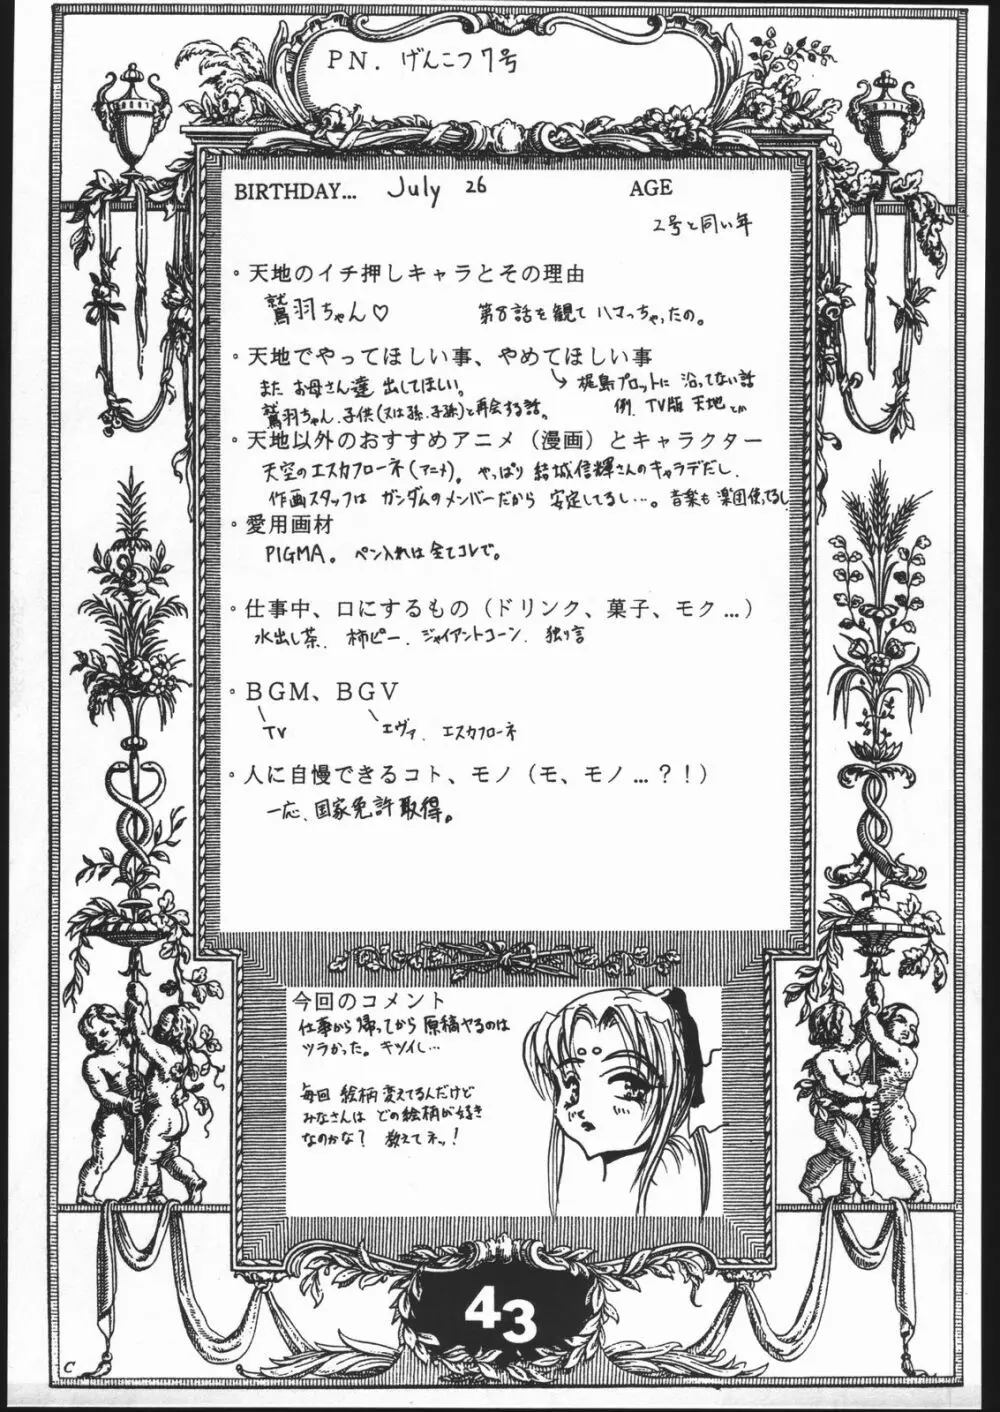 PN. げんこつ7号
BIRTHDAY... July 26 AGE
2号と同い年
・天地のイチ押しキャラとその理由
鷲羽ちゃん♡ 第8話を観てハマっちゃったの。
しゅう
・天地でやってほしい事、やめてほしい事
また お母さん達 出してほしい。
鷲羽ちゃん、子供(又は孫、子孫)と再会する話。
梶島プロットに 沿ってない話
例、TV版 天地とか
・天地以外のおすすめアニメ（漫画）とキャラクター
天空のエスカフローネ(アニメ)。やっぱり 結城信輝さんのキャラデだし、
作画スタッフは ガンダムのメンバーだから 安定してるし…。音楽も 楽団使ってるし
・愛用画材
PIGMA。ペン入れは全てコレで。
・仕事中、口にするもの（ドリンク、菓子、モク...）
水出し茶、柿ピー、ジャイアントコーン、独り言
・BGM、BGV
TV エヴァ、エスカフローネ
・人に自慢できるコト、モノ（モ、モノ...？！）
一応、国家免許取得。
今回のコメント
仕事から帰ってから 原稿やるのは
ツラかった。キツイし…
毎回 絵柄変えてるんだけど
みなさんは どの絵柄が好き
なのかな？ 教えてネッ！
43
C